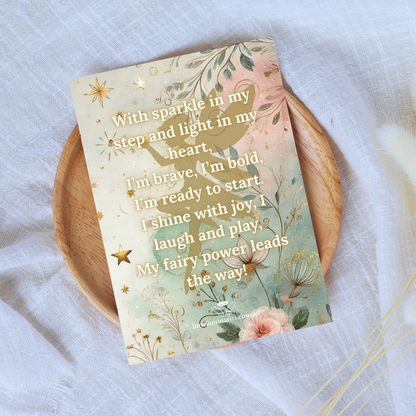 With sparkle in my
step and light in my
heart,
I'm brave, I'm bold,
I'm ready to start.
I shine with joy, I
laugh and play,
My fairy power leads
the way!